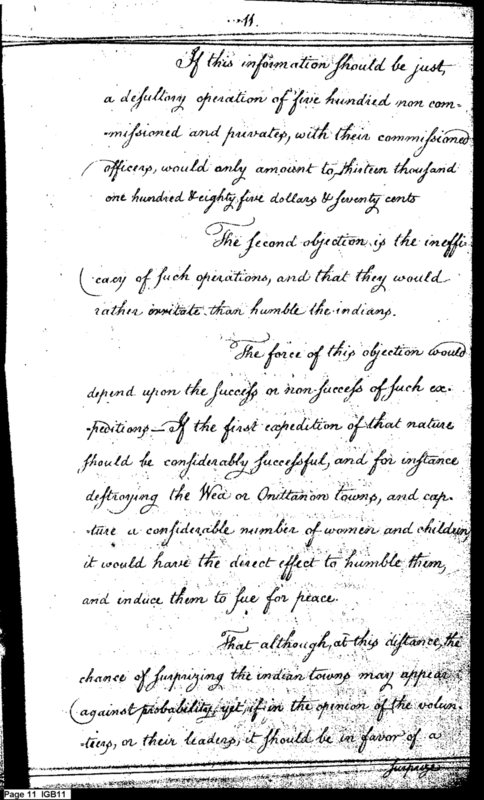 11.
If this information should be just,
a desultory operation of five hundred non com-
-missioned and privates, with their commissioned
officers, would only amount to, thirteen thousand
one hundred & eighty five dollars & seventy cents
The second objection is the ineffi-
cacy of such operations, and that they would
rather irritate than humble the indians.
The force of this objection would
depend upon the success or non-success of such ex-
-peditions — If the first expedition of that nature
should be considerably successful, and for instance
destroying the Wea or Ouittanon towns, and cap-
-ture a considerable number of women and children,
it would have the direct effect to humble them,
and induce them to sue for peace.
That although, at this distance, the
chance of surprizing the indian towns may appear
against probability, yet, if in the opinion of the volun-
-teers, or their leaders, it should be in favor of a
surprize
Page 11 IGB11